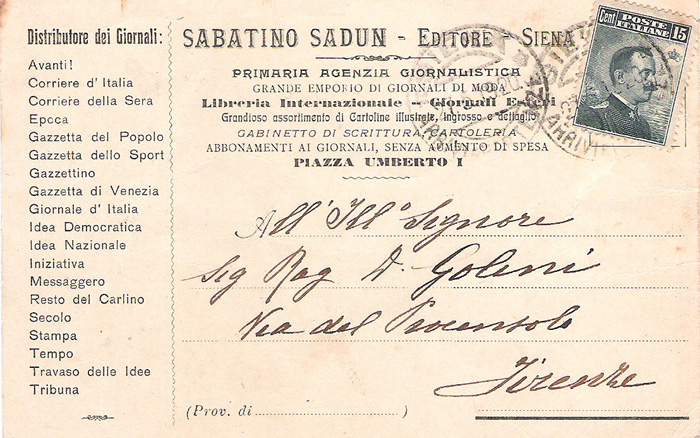 Distributore dei Giornali:
Avanti!
Corriere d' Italia
Corriere della Sera
Epoca
Gazzetta del Popolo
Gazzetta dello Sport
Gazzettino
Gazzetta di Venezia
Giornale d' Italia
Idea Democratica
Idea Nazionale
Iniziativa
Messaggero
Resto del Carlino
Secolo
Stampa
Tempo
Travaso delle Idee
Tribuna
SABATINO SADUN - EDITORE - SIENA
PRIMARIA AGENZIA GIORNALISTICA
GRANDE EMPORIO DI GIORNALI DI MODA
Libreria Internazionale - Giornali Esteri
Grandioso assortimento di Cartoline illustrate, ingrosso e dettaglio
GABINETTO DI SCRITTURA, CARTOLERIA
ABBONAMENTI AI GIORNALI, SENZA AUMENTO DI SPESA
PIAZZA UMBERTO I
Cent POSTE ITALIANE 15
All' Ill.o Signore
Sig Rag A. Goleni
Via del Proconsolo
Firenze
(Prov. di.....................)